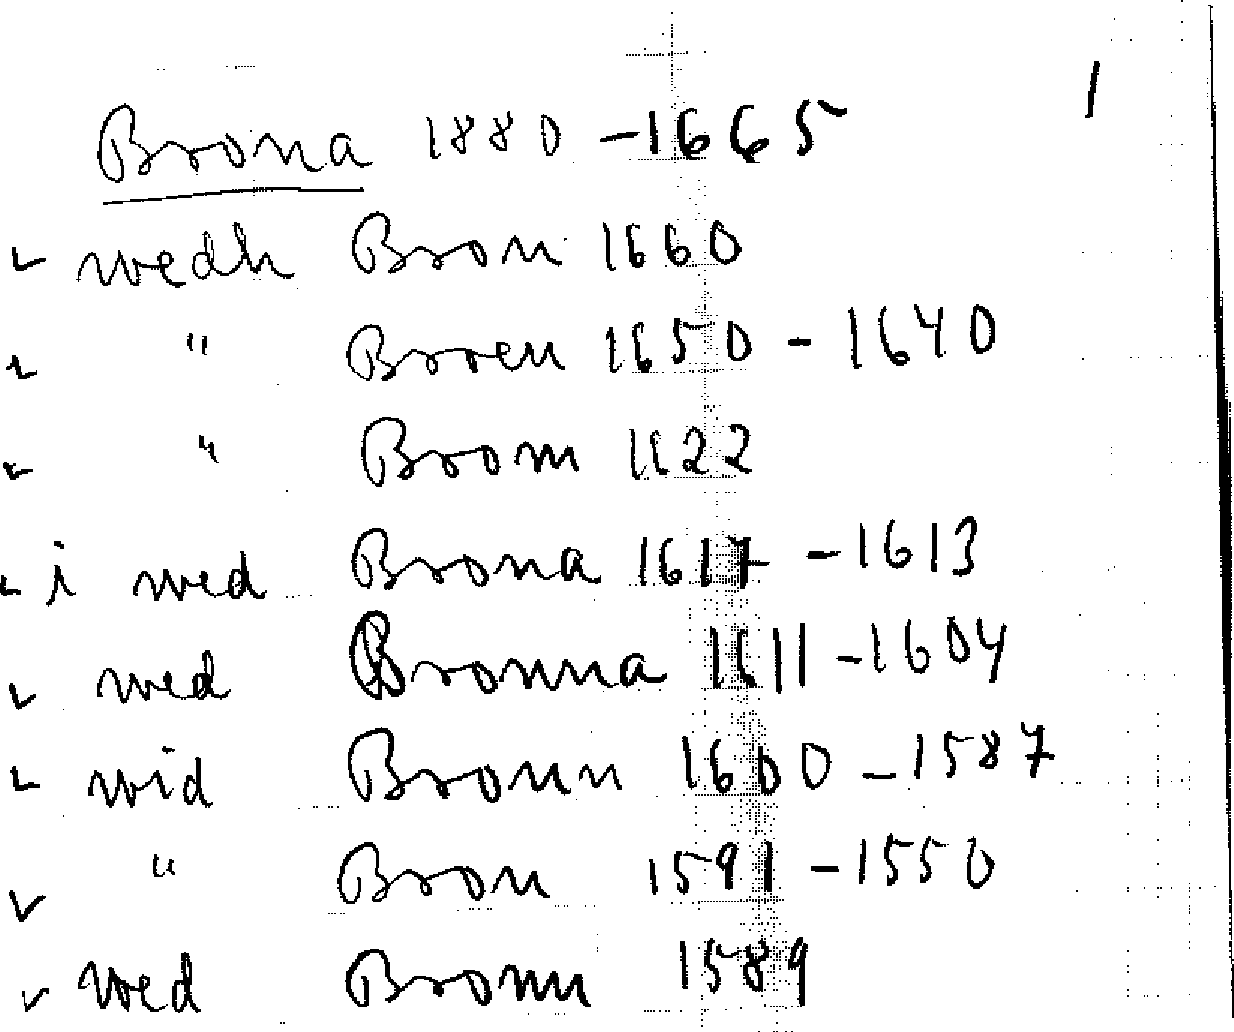 1
Brona 1880 - 1665
✓ wedh Bron 1660
✓ " Broen 1650 - 1640
✓ " Broon 1622
✓ i wed Brona 1617 - 1613
✓ wed Bronna 1611 - 1604
✓ wid Bronn 1600 - 1587
✓ " Bron 1591 - 1550
✓ wed Bronn 1589